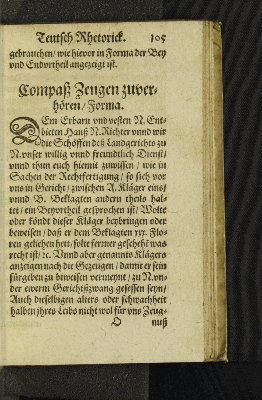 Teutsch Rhetorick. 105
gebrauchen/ wie hievor in Forma der Bey
vnd Endvrtheil angezeigt ist.
Compaß Zeugen zuver-
hören/ Forma.
DEm Erbarn vnd vesten N. Ent-
bieten Hauß N. Richter vnnd wir
die Schöffen deß Landgerichts zu
N. vnser willig vnnd freundtlich Dienst/
vnnd thun euch hiemit zuwissen/ wie in
Sachen der Rechtfertigung/ so sich vor
vns in Gericht/ zwischen A. Kläger eins/
vnnd B. Beklagten andern theils hal-
tet/ ein Beyvrtheil gesprochen ist/ Wolte
oder köndt dieser Kläger beybringen oder
beweisen/ daß er dem Beklagten xx. Flo-
ren geliehen hett/ solte ferner geschehē was
recht ist/ ꝛc. Vnnd aber genannts Klägers
anzeigen nach die Gezeugen/ damit er sein
fürgeben zu beweisen vermeynt/ zu N. vn-
der ewerm Gerichtßzwang gesessen seyn/
Auch dieselbigen alters oder schwachheit
halben jhres Leibs nicht wol für vns Zeug-
O nuß